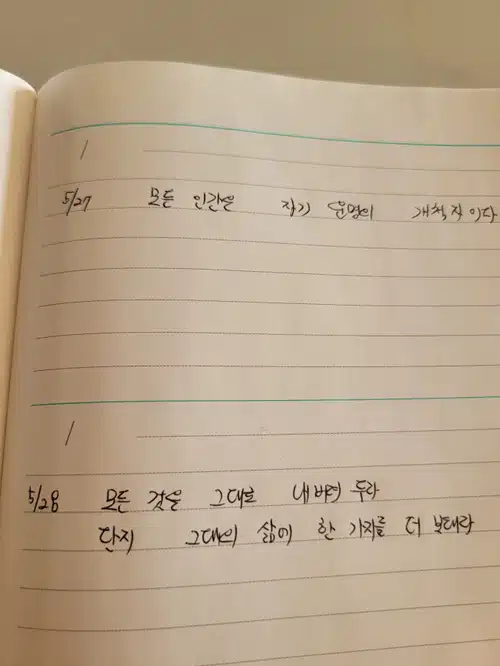 /
5/27 모든 인간은 자기 운명의 개척자이다
/
5/28 모든 것을 그대로 내버려 두라
단지 그대의 삶에 한 가지를 더 보태라